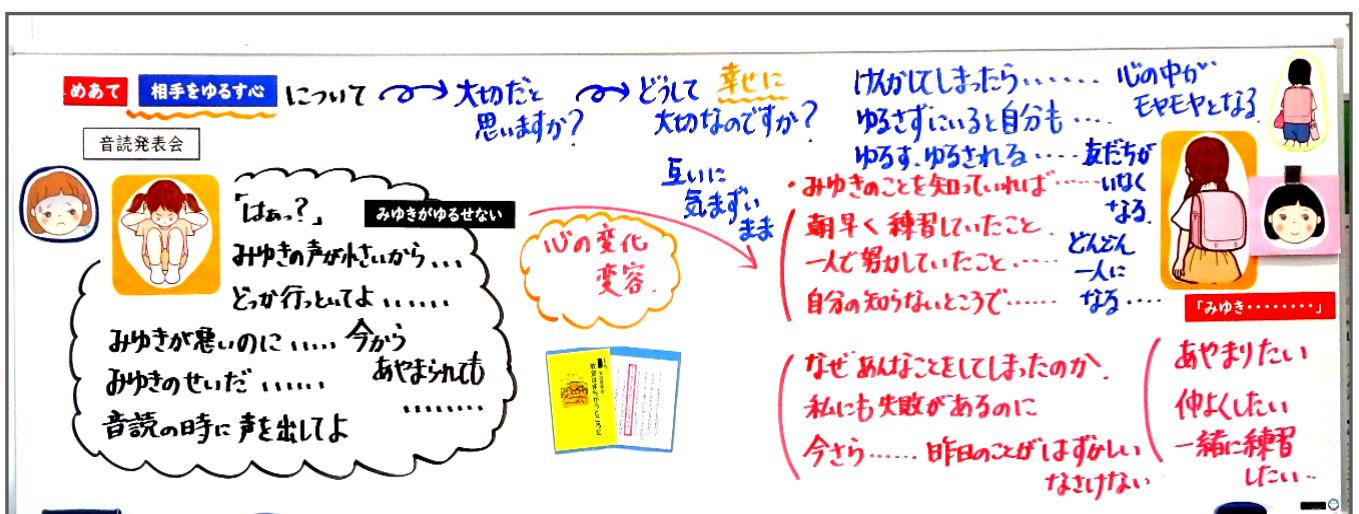 めあて 相手をゆるす心 について 大切だと
思いますか?
どうして 幸せに
大切なのですか?
けんかしてしまったら‥‥‥ 心の中が
モヤモヤとなる.
ゆるさずにいると自分も‥‥
ゆるす、ゆるされる‥‥‥ 友だちが
いなく
なる.
どんどん
一人に
なる‥‥
互いに
気まずい
まま
音読発表会
「はぁっ?」
みゆきがゆるせない
みゆきの声が小さいから、、、
どっか行っといてよ、、、、、、
みゆきが悪いのに、、、、、 今から
あやまられても
‥‥‥‥
みゆきのせいだ、、、、、、
音読の時に声を出してよ
心の変化
変容.
・みゆきのことを知っていれば‥‥‥
朝早く練習していたこと.
一人で努力していたこと‥‥‥
自分の知らないところで‥‥‥
「みゆき・・・・・・・・・」
なぜあんなことをしてしまったのか.
私にも失敗があるのに
今さら‥‥‥昨日のことがはずかしい
なさけない
あやまりたい
仲よくしたい
一緒に練習
したい‥